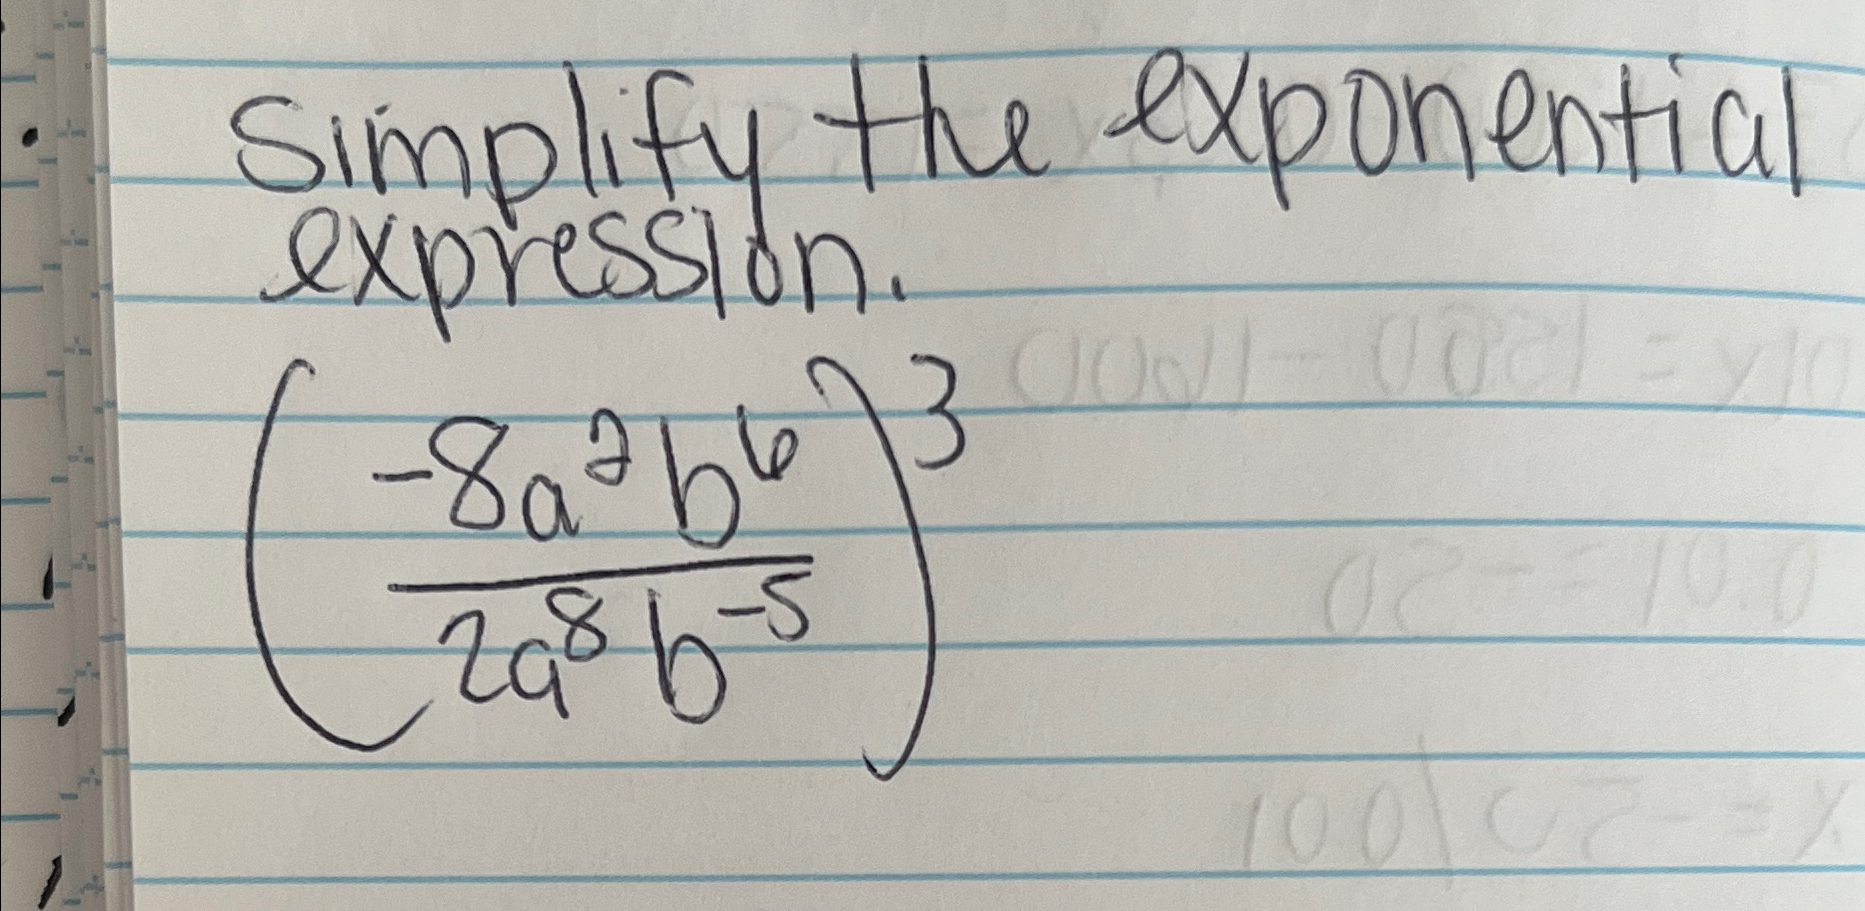 Simplify the exponential
expression.
(-8a²b⁶ / 2a⁸b⁻⁵)³